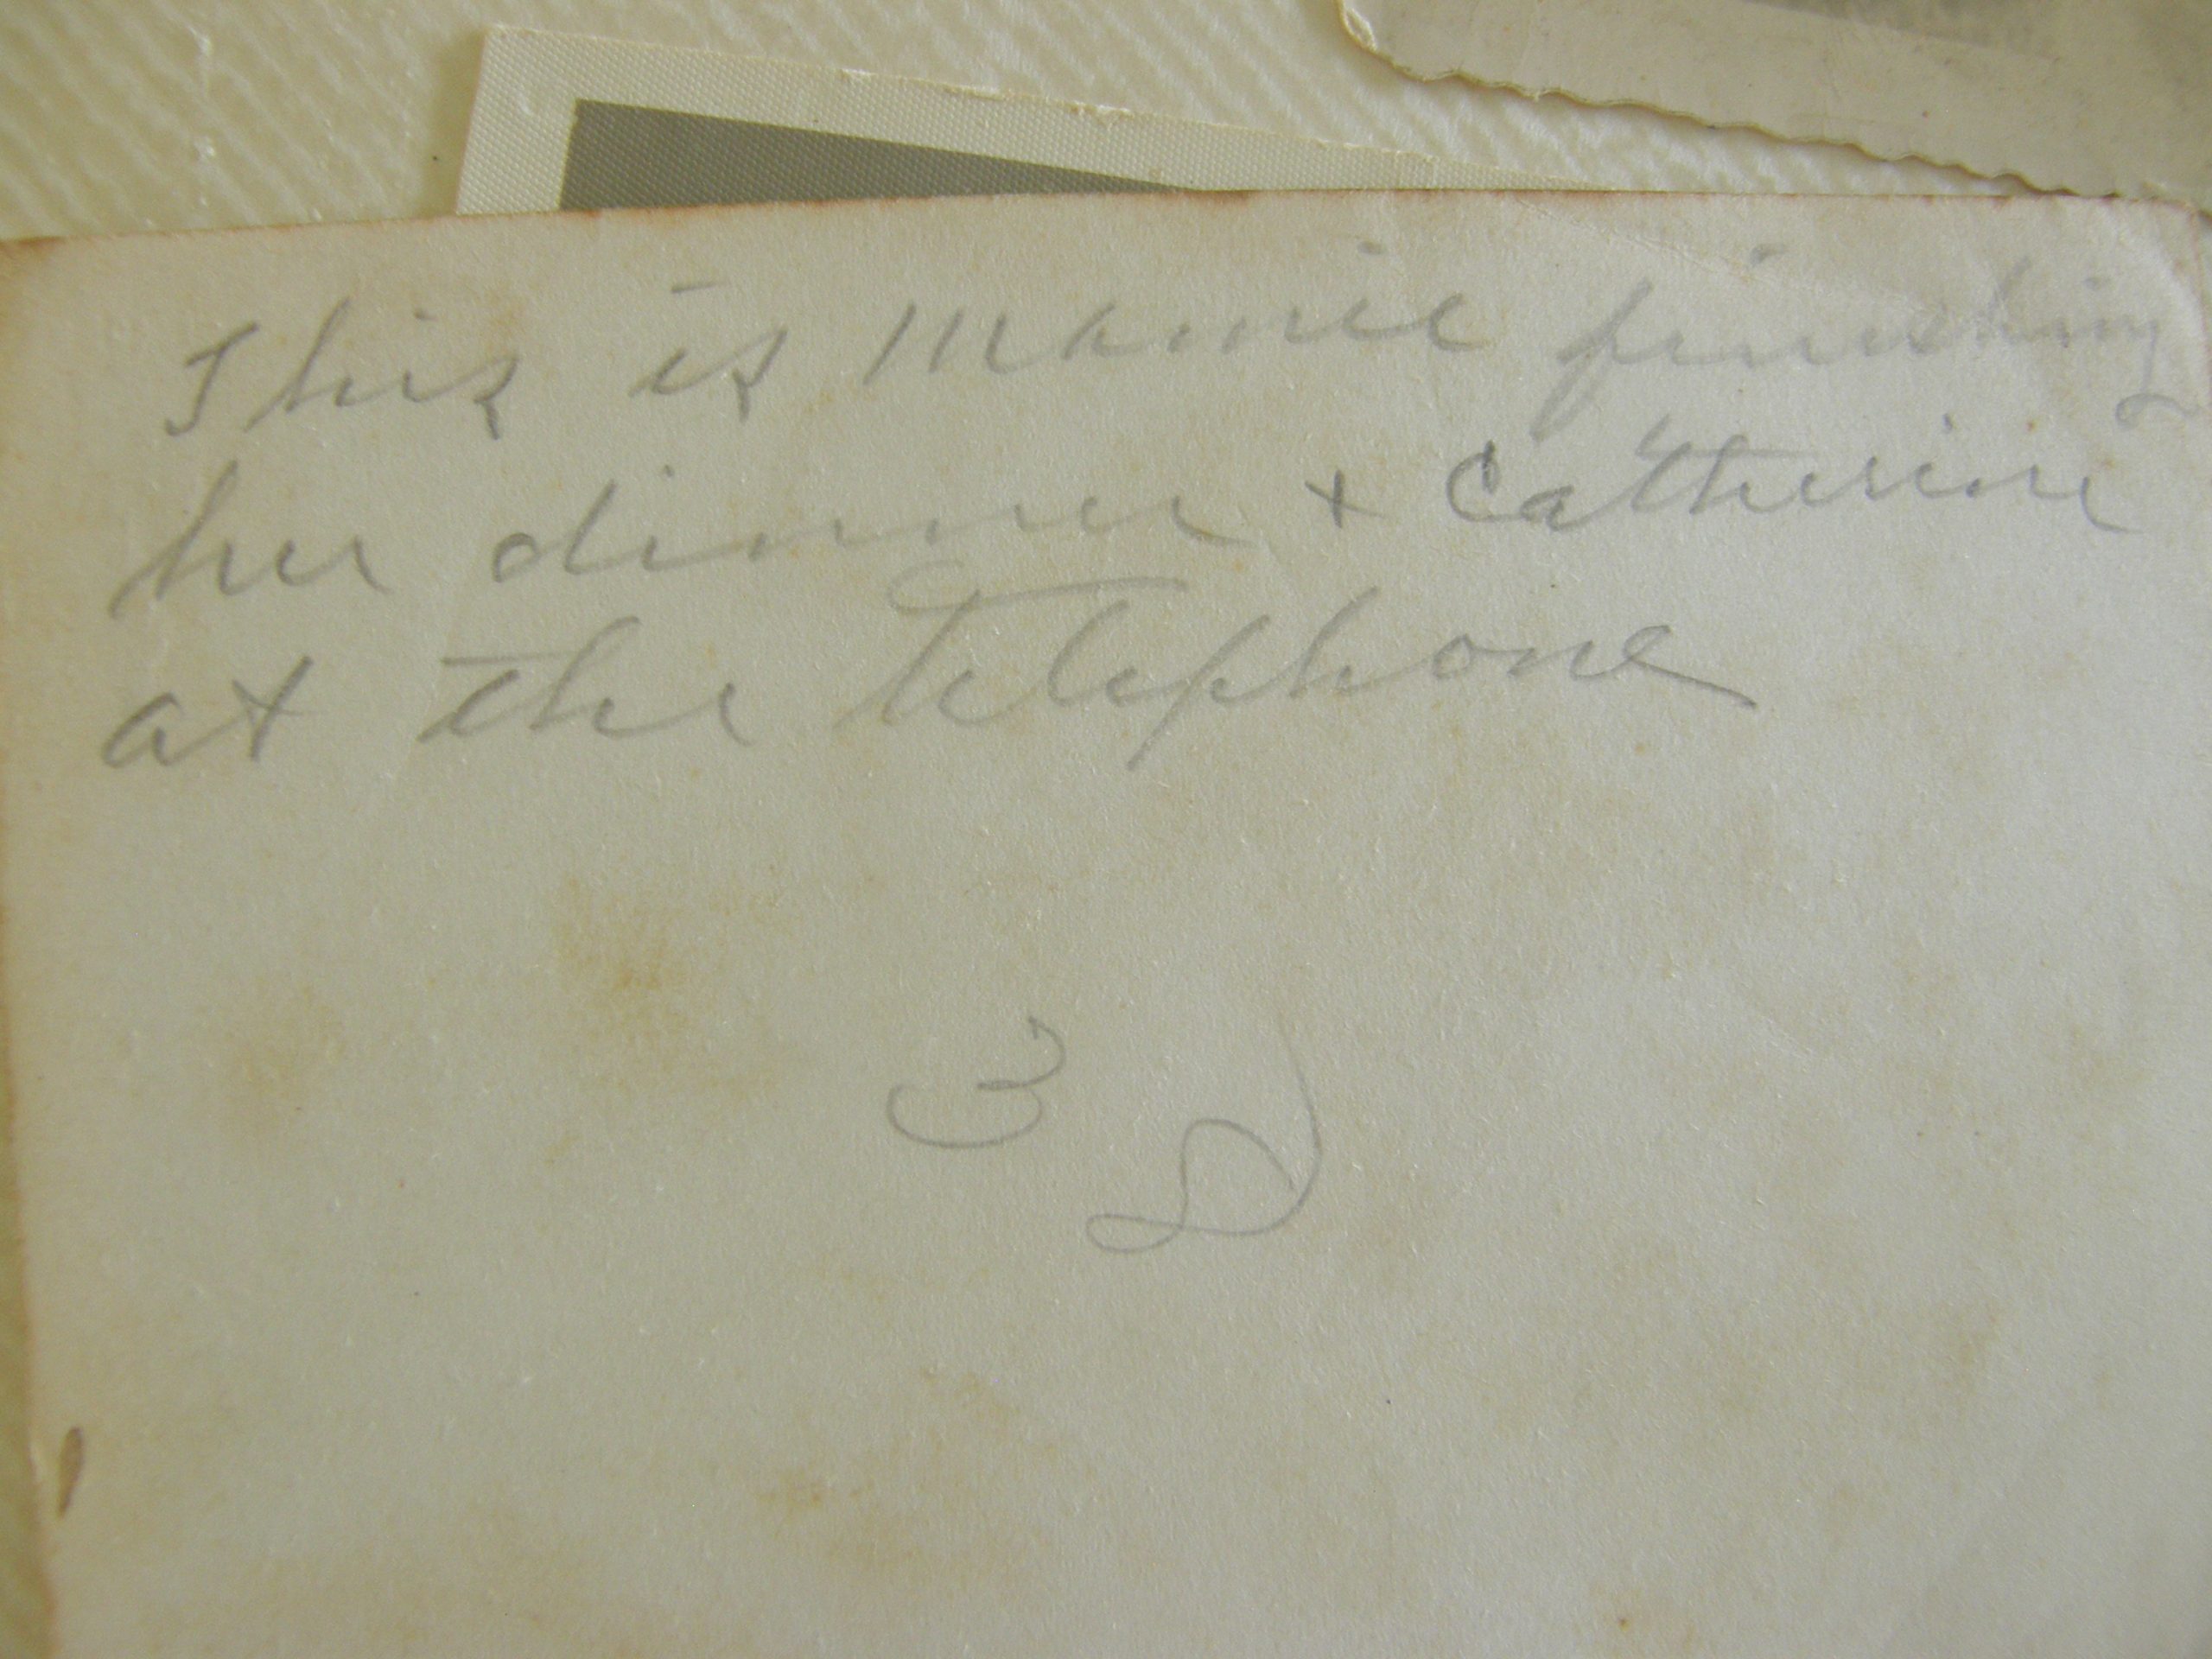 This is Mamie finishing
her dinner + Catherine
at the telephone
3